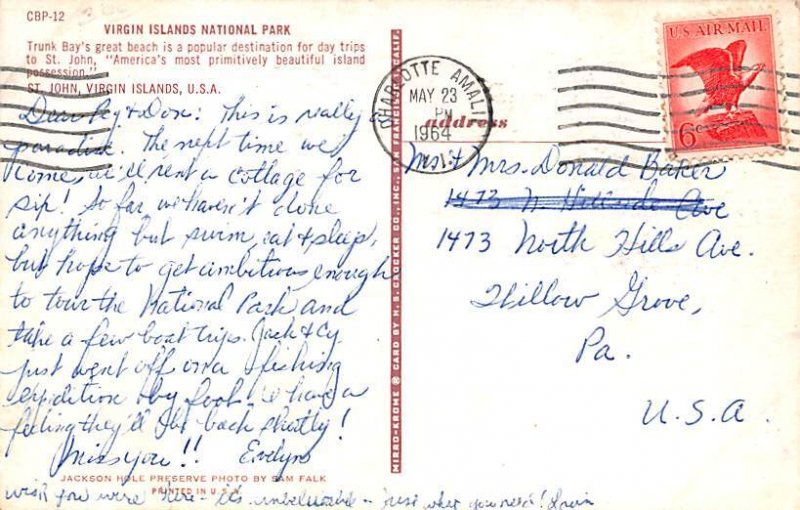 CBP-12
VIRGIN ISLANDS NATIONAL PARK
Trunk Bay's great beach is a popular destination for day trips
to St. John, "America's most primitively beautiful island
possession."
ST. JOHN, VIRGIN ISLANDS, U.S.A.
Dear Peg & Don: This is really a
paradise. The next time we
come, we'll rent a cottage for
sip! So far we haven't done
anything but swim, eat & sleep,
but hope to get ambitious enough
to tour the National Park and
take a few boat trips. Jack & Cy
just went off on a fishing
expedition by foot. I have a
feeling they'll be back shortly!
Miss you!! Evelyn
JACKSON HOLE PRESERVE PHOTO BY SAM FALK
PRINTED IN U.S.A.
wish you were here - it's unbelievable - just what you need! Irvin
MIRRO-KROME ® CARD BY H. S. CROCKER CO., INC., SAN FRANCISCO, CALIF.
CHARLOTTE AMALIE
MAY 23
PM
1964
U.S. AIR MAIL
6c
address
Mr. & Mrs. Donald Baker
1473 N. Hillside Ave
1473 North Hills Ave.
Willow Grove,
Pa.
U.S.A.